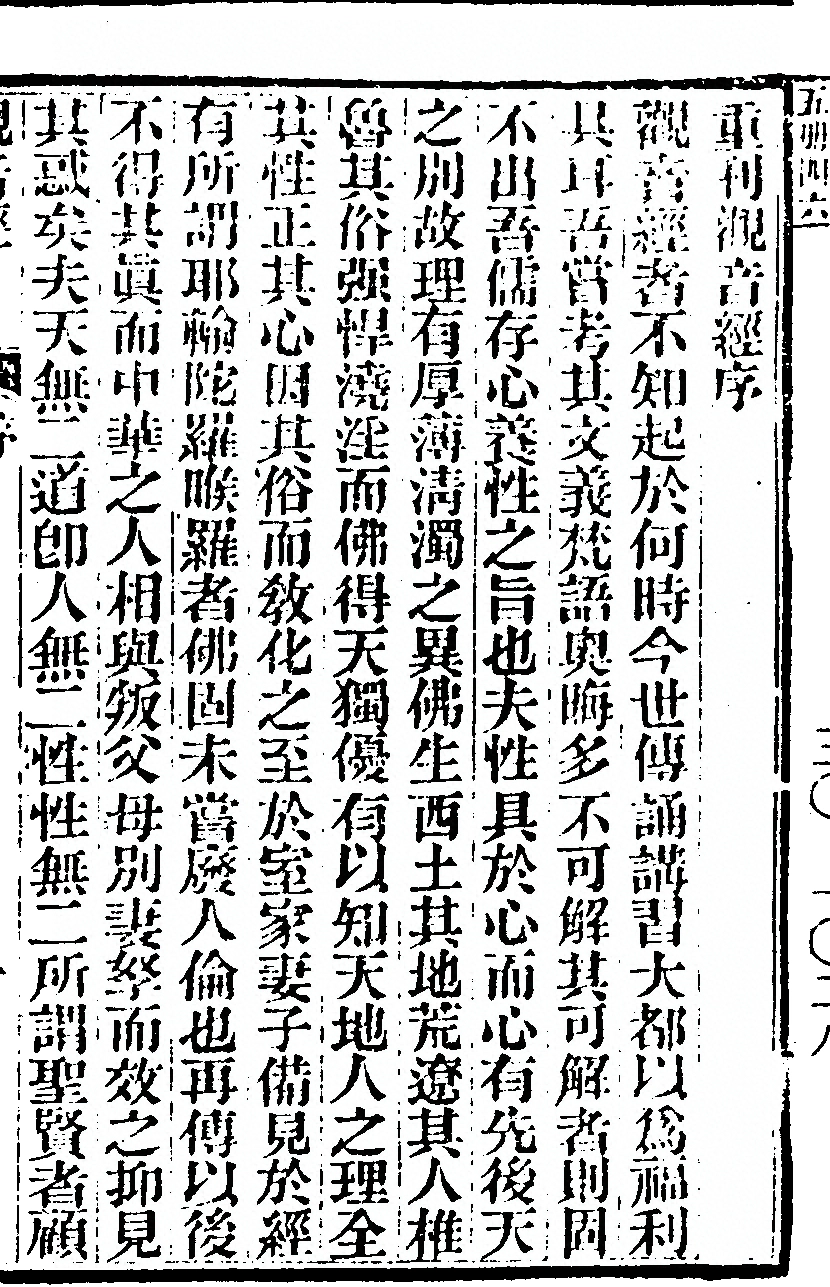 重刊觀音經序
觀音經者不知起於何時今世傳誦講習大都以為福利
具耳吾嘗考其文義梵語奧晦多不可解其可解者則固
不出吾儒存心養性之旨也夫性具於心而心有先後天
之別故理有厚薄清濁之異佛生西土其地荒遼其人椎
魯其俗强悍澆淫而佛得天獨優有以知天地人之理全
其性正其心因其俗而敎化之至於室家妻子備見於經
有所謂耶輸陀羅㬋羅者佛固未嘗廢人倫也再傳以後
不得其眞而中華之人相與叛父母別妻孥而效之抑見
其惑矣夫天無二道卽人無二性性無二所謂聖賢者顧
五册四六
三〇一〇二八